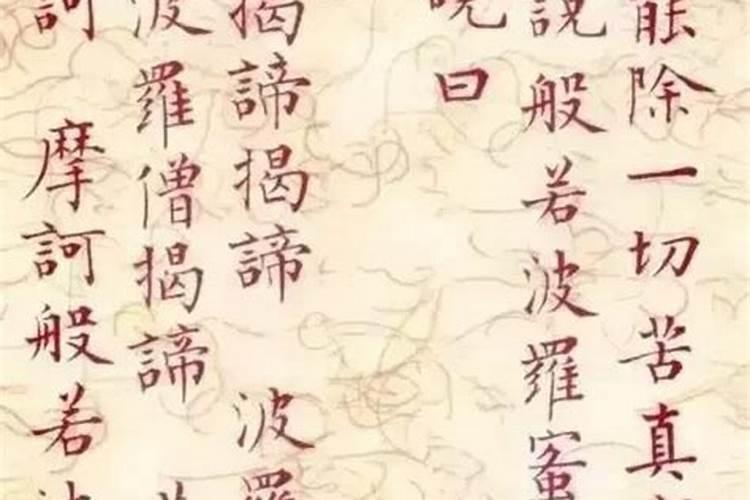 能除一切苦真
說般若波羅蜜
呪曰
揭諦揭諦波羅
波羅僧揭諦
訶摩訶般若波